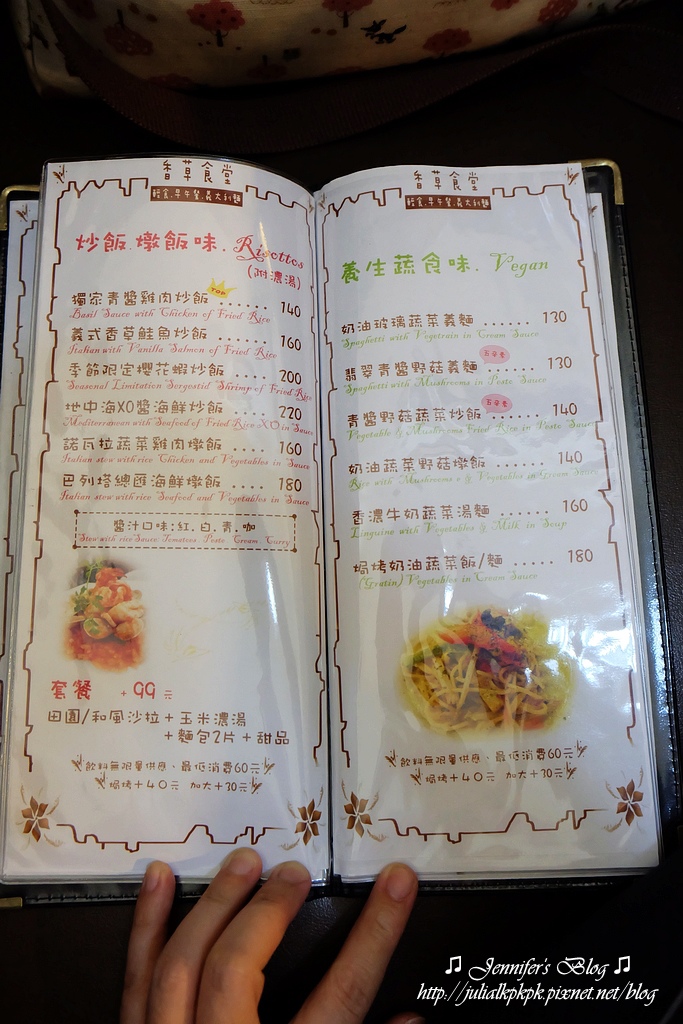 香草食堂
輕食.早午餐.義大利麵
炒飯.燉飯味. Risottos
(附濃湯)
TOP
獨家青醬雞肉炒飯 ....... 140
Basil Sauce with Chicken of Fried Rice
義式香草鮭魚炒飯 ....... 160
Italian with Vanilla Salmon of Fried Rice
季節限定櫻花蝦炒飯 ..... 200
Seasonal Limitation Sorgestid Shrimp of Fried Rice
地中海XO醬海鮮炒飯 .... 220
Mediterranean with Seafood of Fried Rice XO in Sauce
諾瓦拉蔬菜雞肉燉飯 ..... 160
Italian stew with rice Chicken and Vegetables in Sauce
巴列塔總匯海鮮燉飯 ..... 180
Italian stew with rice Seafood and Vegetables in Sauce
醬汁口味:紅.白.青.咖
Stew with rice Sauce: Tomatoes. Pesto. Cream. Curry
套餐 +99元
田園/和風沙拉+玉米濃湯
+麵包2片+甜品
飲料無限量供應、最低消費60元
焗烤+40元 加大+30元
香草食堂
輕食.早午餐.義大利麵
養生蔬食味. Vegan
奶油玻璃蔬菜義麵 ...... 130
Spaghetti with Vegetrain in Cream Sauce
五辛素
翡翠青醬野菇義麵 ...... 130
Spaghetti with Mushrooms in Pesto Sauce
五辛素
青醬野菇蔬菜炒飯 ...... 140
Vegetable & Mushrooms Fried Rice in Pesto Sauce
奶油蔬菜野菇燉飯 ...... 140
Rice with Mushrooms & Vegetables in Cream Sauce
香濃牛奶蔬菜湯麵 ...... 160
Linguine with Vegetables & Milk in Soup
焗烤奶油蔬菜飯/麵 ..... 180
(Gratin) Vegetables in Cream Sauce
飲料無限量供應、最低消費60元
焗烤+40元 加大+30元
♫ Jennifer's Blog ♫
http://julialkpkpk.pixnet.net/blog